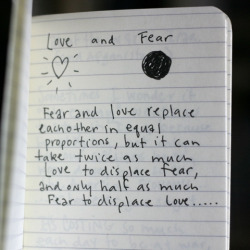 Love and Fear
Fear and love replace
eachother in equal
proportions, but it can
take twice as much
Love to displace fear,
and only half as much
Fear to displace Love.....